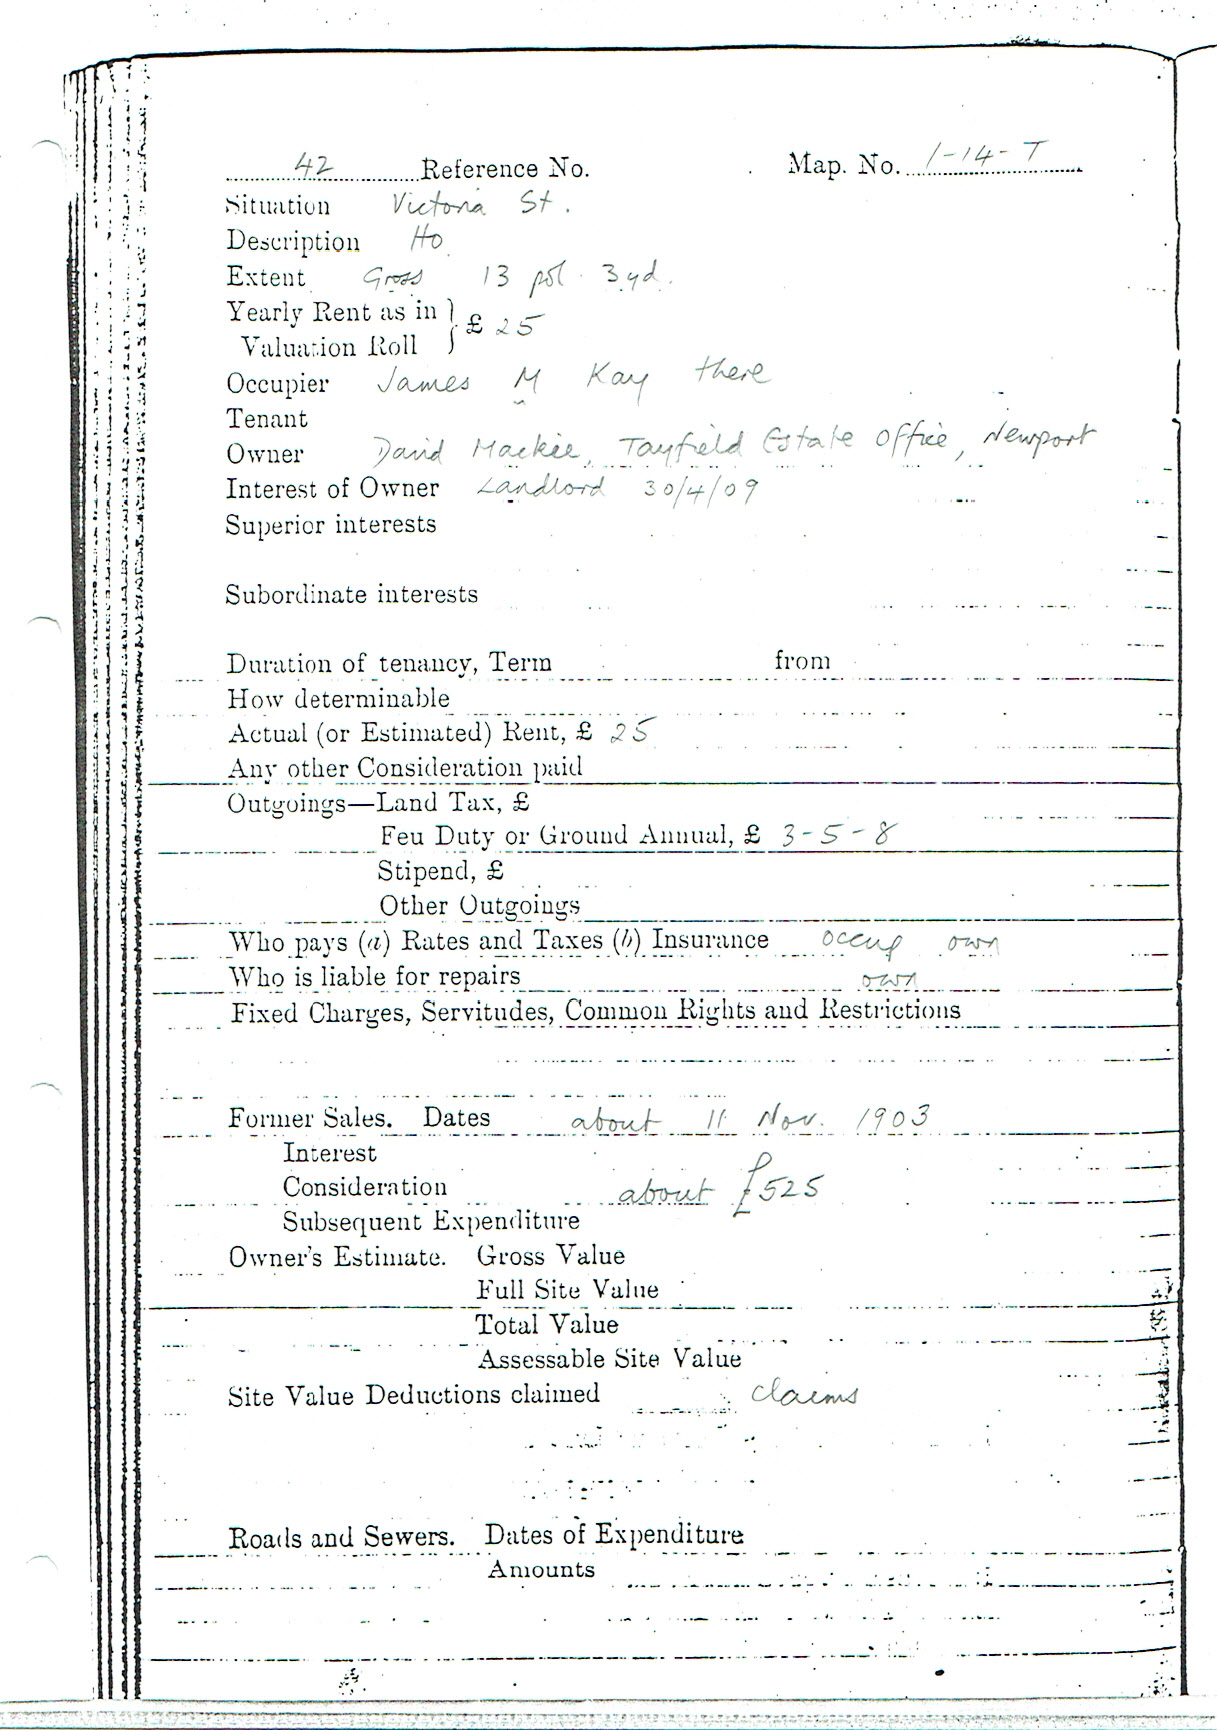 42 Reference No. Map. No. 1-14-T
Situation Victoria St.
Description Ho
Extent Gross 13 pol. 3 yd.
Yearly Rent as in
Valuation Roll } £ 25
Occupier James M Kay there
Tenant
Owner David Mackie, Tayfield Estate Office, Newport
Interest of Owner Landlord 30/4/09
Superior interests
Subordinate interests
Duration of tenancy, Term from
How determinable
Actual (or Estimated) Rent, £ 25
Any other Consideration paid
Outgoings—Land Tax, £
Feu Duty or Ground Annual, £ 3-5-8
Stipend, £
Other Outgoings
Who pays (a) Rates and Taxes (b) Insurance occup own
Who is liable for repairs own
Fixed Charges, Servitudes, Common Rights and Restrictions
Former Sales. Dates about 11 Nov. 1903
Interest
Consideration about £525
Subsequent Expenditure
Owner's Estimate. Gross Value
Full Site Value
Total Value
Assessable Site Value
Site Value Deductions claimed claims
Roads and Sewers. Dates of Expenditure
Amounts